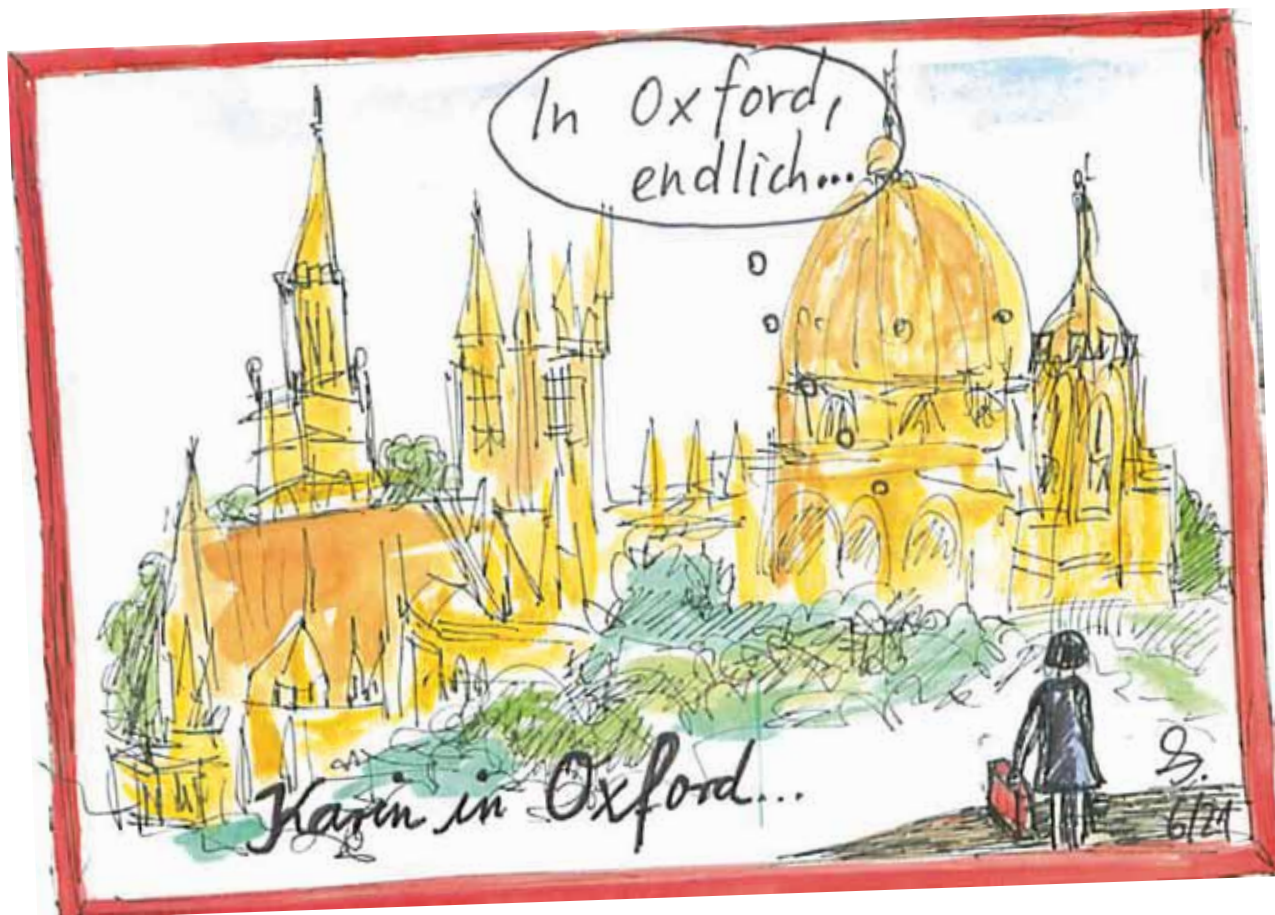 In Oxford,
endlich...
Karin in Oxford...
6/21